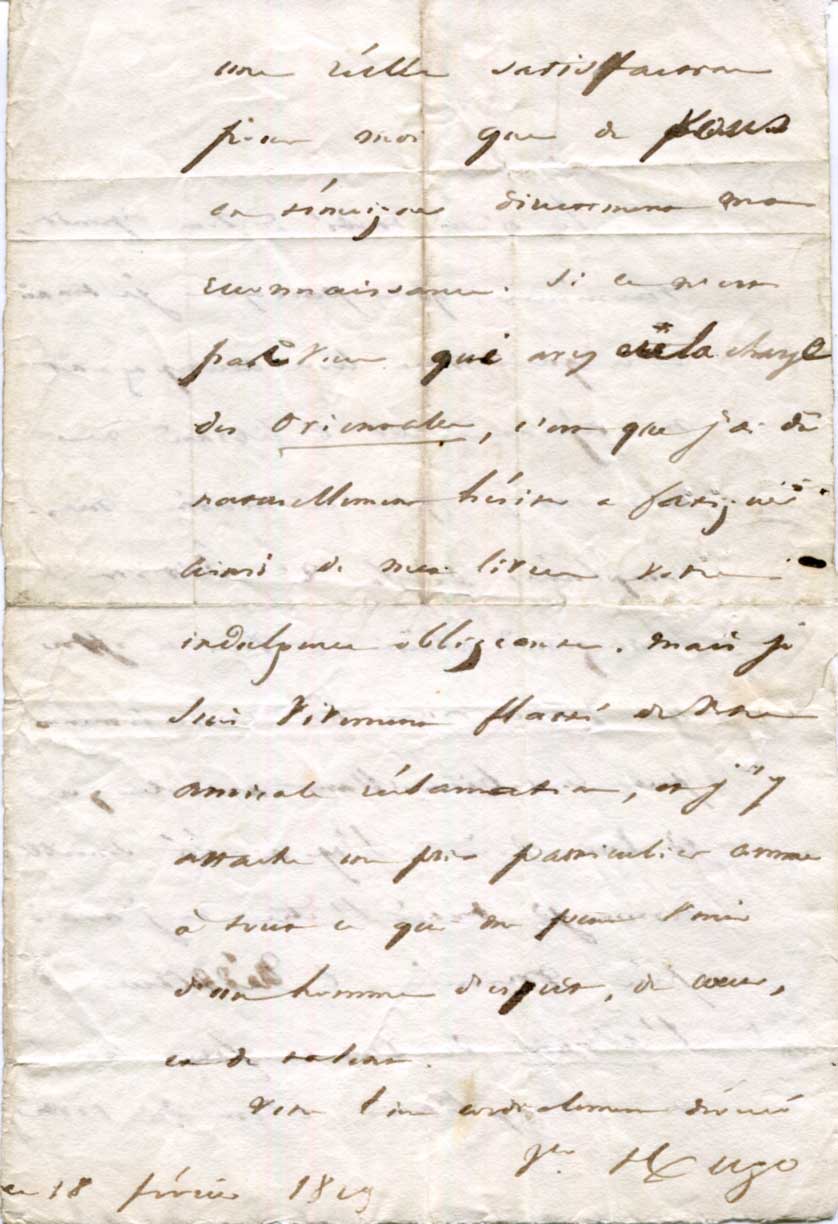 une réelle satisfaction
pour moi que de vous
en témoigner vivement ma
reconnaissance. Si ce n'est
pas vous qui avez eu la charge
des Orientales, c'est que j'ai dû
naturellement hésiter à fatiguer
ainsi de mes livres votre
indulgence obligeante. mais je
suis vivement flatté de votre
amicale réclamation, et j'y
attache un prix particulier comme
à tout ce qui me peut venir
d'un homme d'esprit, de cœur,
et de talent.
Votre bien cordialement dévoué
Vor Hugo
ce 18 février 1829